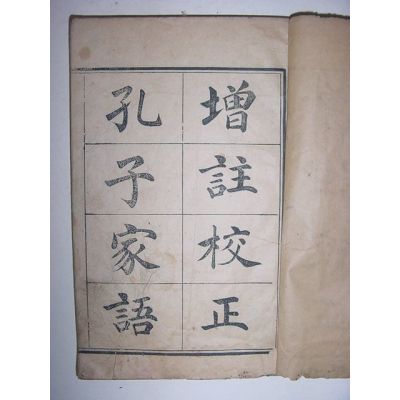 增註校正
孔子家語